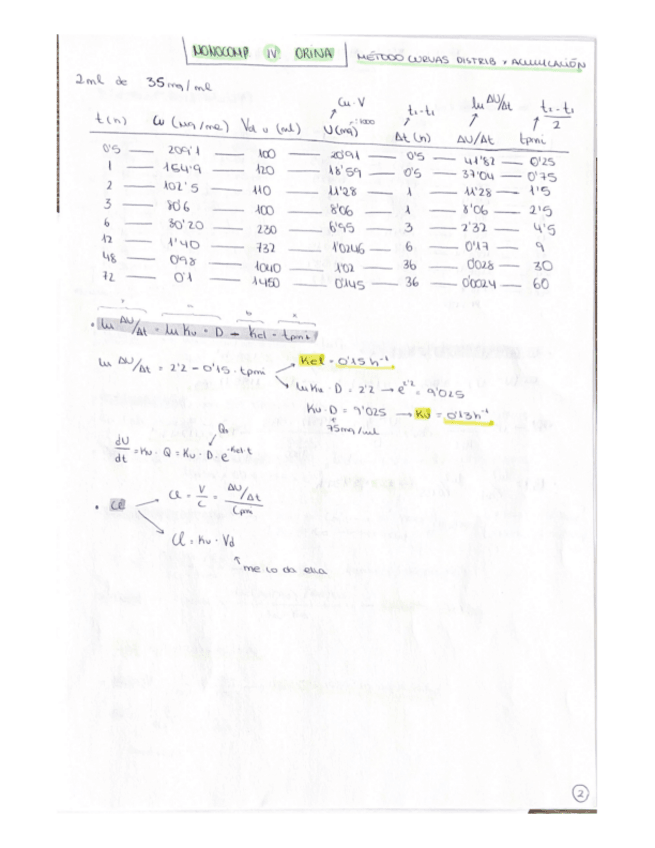 MONOCOMP IV ORINA MÉTODO CURVAS DISTRIB Y ACUMULACIÓN
2ml de 35mg/ml
Cu·V t₂-t₁ ln ΔU/Δt t₂-t₁/2
t(h) Cu (μg/ml) Vol u (ml) U(mg) /1000 Δt (h) ΔU/Δt tpmi
0'5 — 209'1 — 100 — 20'91 — 0'5 — 41'82 — 0'25
1 — 154'9 — 120 — 18'59 — 0'5 — 37'04 — 0'75
2 — 102'5 — 110 — 11'28 — 1 — 11'28 — 1'5
3 — 80'6 — 100 — 8'06 — 1 — 8'06 — 2'5
6 — 30'20 — 230 — 6'95 — 3 — 2'32 — 4'5
12 — 1'40 — 732 — 1'0246 — 6 — 0'17 — 9
48 — 0'98 — 1040 — 1'02 — 36 — 0'028 — 30
72 — 0'1 — 1450 — 0'145 — 36 — 0'0024 — 60
• ln ΔU/Δt = ln Ku · D - Kel · tpmi
ln ΔU/Δt = 2'2 - 0'15 · tpmi → Kel = 0'15 h⁻¹
ln Ku · D = 2'2 → e^2'2 = 9'025
Ku · D = 9'025 → Ku = 0'13h⁻¹
75mg/ml
dU/dt = Ku · Q = Ku · D · e^-Kel·t
• Cl → Cl = V/C = ΔU/Δt / Cpm
Cl = Ku · Vd
me lo da ella
2